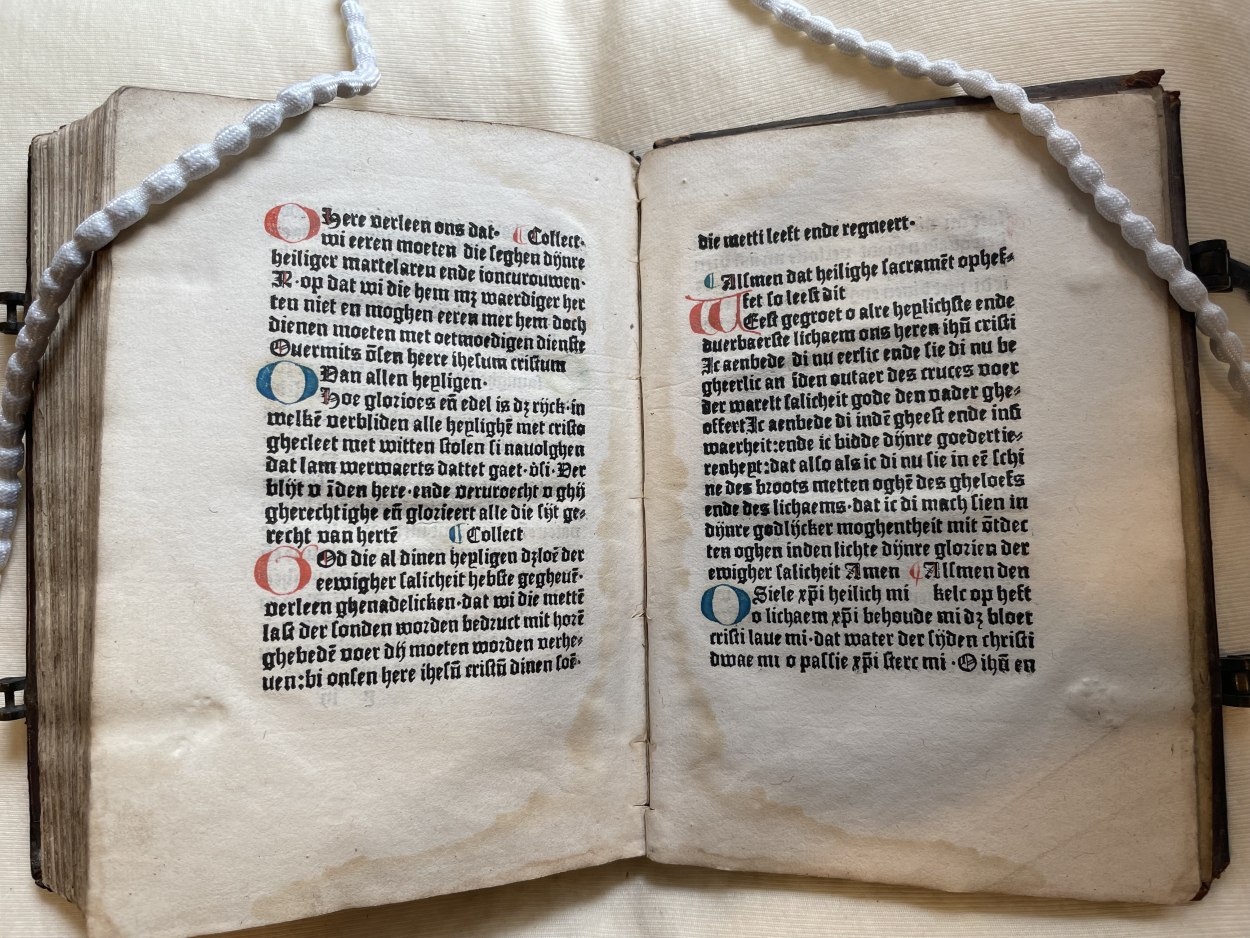 O Here verleen ons dat· ¶Collect·
wi eeren moeten die seghen dijnre
heiliger martelaren ende ioncurouwen·
N·op dat wi die hem mʒ waerdiger her
ten niet en moghen eeren mer hem doch
dienen moeten met oetmoedigen dienste
Ouermits ōsen heere ihesum cristum
O Van allen heyligen·
Hoe glorioes eñ edel is dʒ rijck·in
welkē verbliden alle heylighē met cristo
ghecleet met witten stolen si nauolghen
dat lam werwaerts dattet gaet·ōsi·Ver
blijt v īden here·ende veruroecht v ghij
gherechtighe eñ glorieert alle die sijt ge⸗
recht van hertē ¶Collect
GOd die al dinen heyligen dʒloē der
eewigher salicheit hebste gegheuē·
verleen ghenadelicken·dat wi die mettē
last der sonden worden bedruct mit horē
ghebedē voer dij moeten worden verhe⸗
uen:bi onsen here ihesū cristū dinen soē·
die metti leeft ende regneert·
¶Alsmen dat heilighe sacramēt ophef⸗
fet so leest dit
WEest gegroet o alre heylichste ende
duerbaerste lichaem ons heren ihū cristi
Ic aenbede di nu eerlic ende sie di nu be
gheerlic an īden outaer des cruces voer
der warelt salicheit gode den vader ghe⸗
offert Ic aenbede di indē gheest ende inð
waerheit:ende ic bidde dijnre goedertie⸗
renheyt:dat also als ic di nu sie in eē schi
ne des broots metten oghē des gheloefs
ende des lichaems·dat ic di mach sien in
dijnre godlijcker moghentheit mit ōtdec
ten oghen inden lichte dijnre glorien der
ewigher salicheit Amen ¶Alsmen den
O Siele xp̄i heilich mi kelc op heft
o lichaem xp̄i behoude mi dʒ bloet
cristi laue mi·dat water der sijden christi
dwae mi o passie xp̄i sterc mi·O ihū en